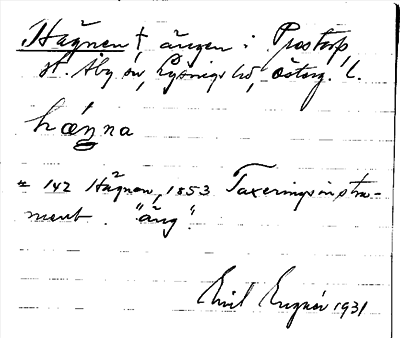 Hägnen † ängen i Prostorp,
st. Aby sn, Lysings hd, Österg. l.
hæŋna
= 142 Hägnen, 1853 Taxeringsinstru-
ment. "äng".
Emil 1931